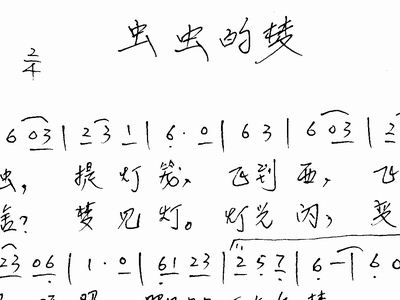 虫虫的梦
2/4
6 03 | 23 1 | 6· 0 | 6 3 | 6 03 | 2
虫，提灯笼，飞到西，飞
舍？梦见灯。灯光闪，变
23 06 | 1· 0 | 61 23 | 2 5 7 | 6 — | 6 0